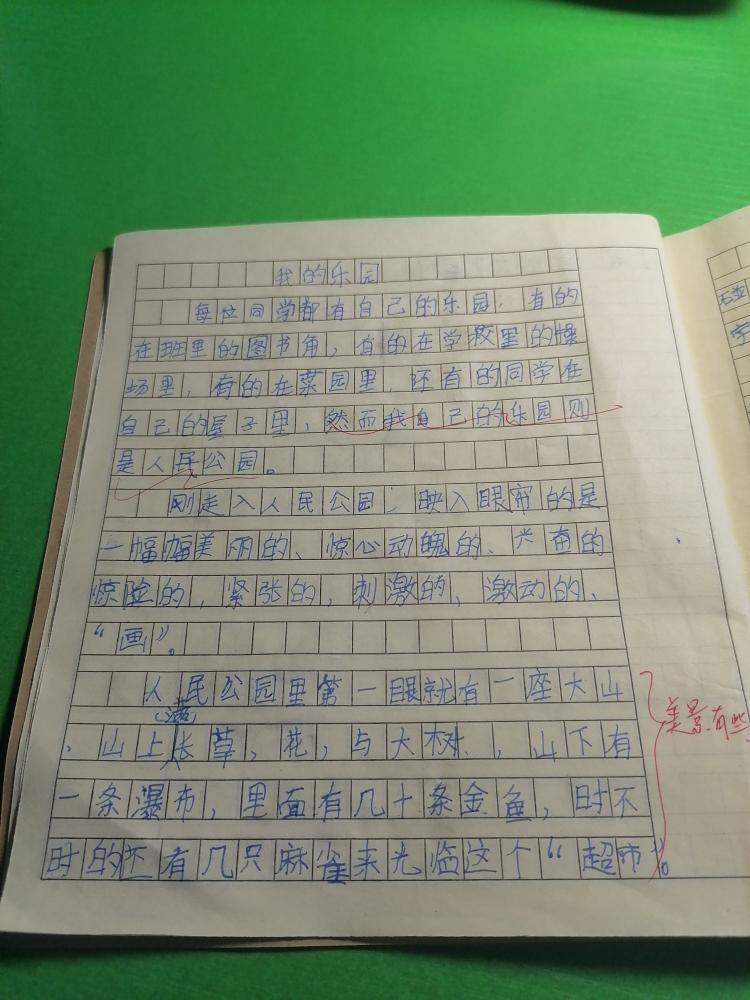 我的乐园
每位同学都有自己的乐园，有的
在班里的图书角，有的在学校里的操
场里，有的在菜园里，还有的同学在
自己的屋子里，然而我自己的乐园则
是人民公园。
刚走入人民公园，映入眼帘的是
一幅幅美丽的、惊心动魄的、兴奋的
惊险的，紧张的，刺激的、激动的、
“画”。
人民公园里第一眼就有一座大山
，山上长满草，花，与大树，山下有
一条瀑布，里面有几十条金鱼，时不
时的还有几只麻雀来光临这个“超市”。
美景有些